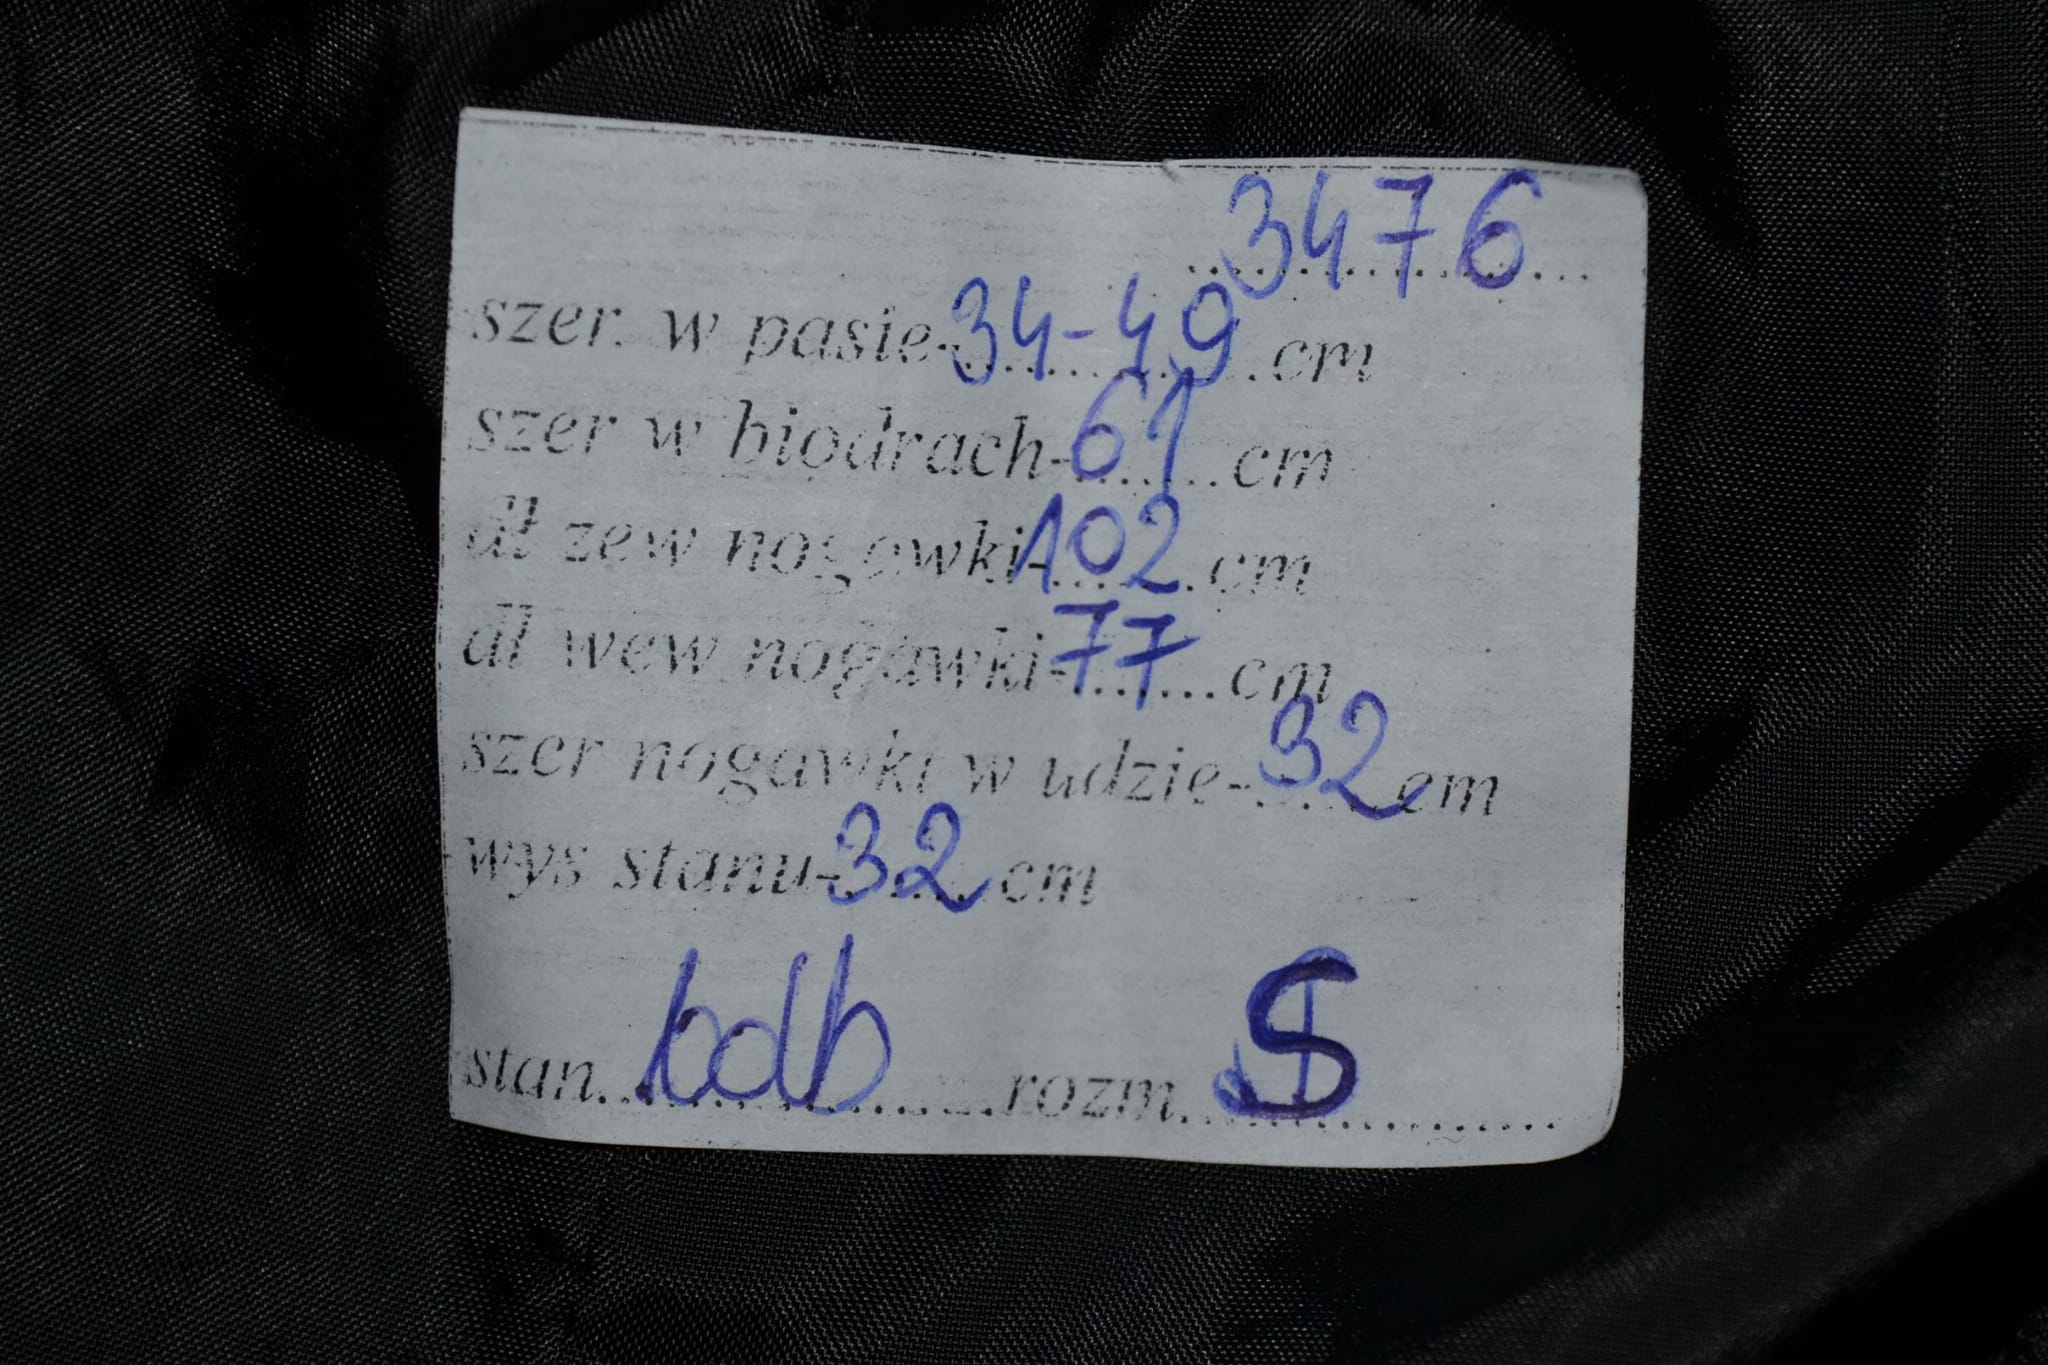 3476
szer. w pasie-34-49 cm
szer w biodrach-61 cm
dł zew nogawki-102 cm
dł wew nogawki-77 cm
szer nogawki w udzie-32 cm
wys stanu-32 cm
stan bdb rozm. S